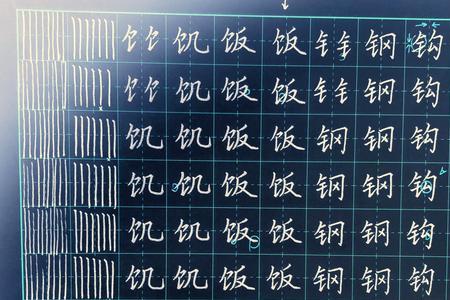 饣饣 饥 饭 饭 钅钅 钢 钩
饣饣 饥 饭 饭 钅钅 钢 钩
饥 饥 饭 饭 钢 钢 钩
饥 饥 饭 饭 钢 钢 钩
饥 饥 饭 饭 钢 钢 钩
饥 饥 饭 饭 钢 钢 钩